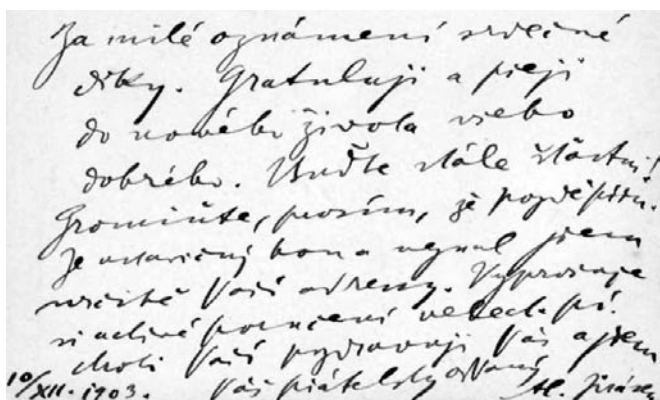 Za milé oznámení srdečné
díky. Gratuluji a přeji
do nového života všeho
dobrého. Buďte stále šťastni!
Promiňte, prosím, že pozdě píšu.
Je ustavičný hon a neznal jsem
určitě Vaší adresy. Vyprošuje
si uctivé poručení velect. pí.
choti Vaší pozdravuji Vás a jsem
10/XII. 1903. Váš přátelsky oddaný Al. Jirásek